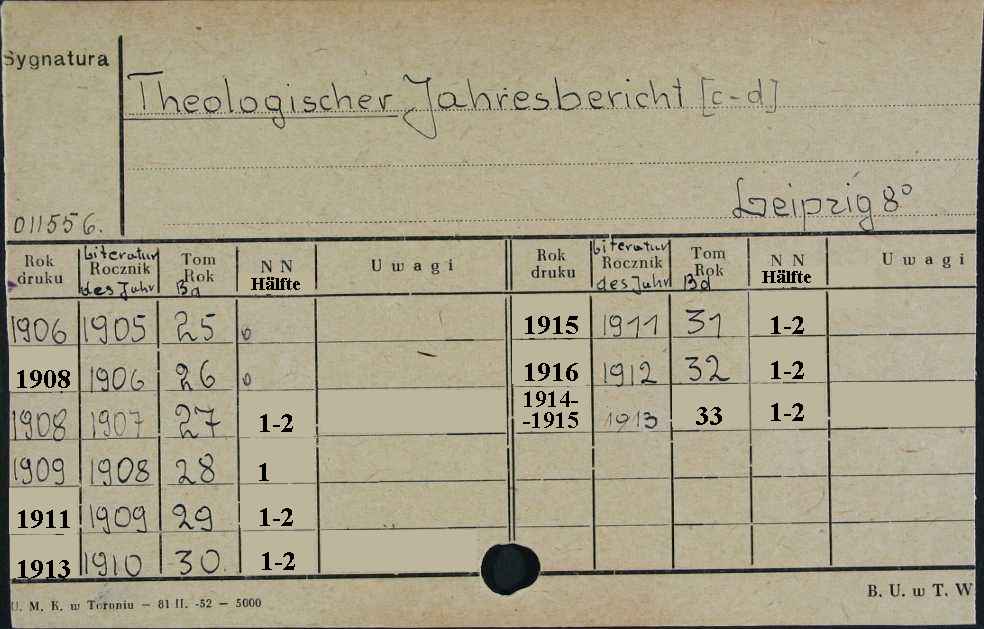 Sygnatura
Theologischer Jahresbericht [c-d]
Leipzig 8°
011556.
Rok druku | Literatur Rocznik des Jahr | Tom Rok Bd | N N Hälfte | Uwagi | Rok druku | Literatur Rocznik des Jahr | Tom Rok Bd | N N Hälfte | Uwagi
1906 | 1905 | 25 | 0 | | 1915 | 1911 | 31 | 1-2
1908 | 1906 | 26 | 0 | | 1916 | 1912 | 32 | 1-2
1908 | 1907 | 27 | 1-2 | | 1914--1915 | 1913 | 33 | 1-2
1909 | 1908 | 28 | 1
1911 | 1909 | 29 | 1-2
1913 | 1910 | 30. | 1-2
U. M. K. w Toruniu — 81 II. -52 — 5000
B. U. w T. W